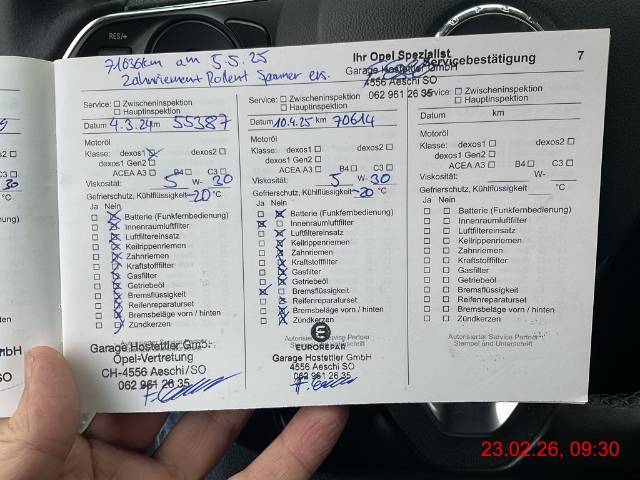 RES/+
71036km am 5.5.25
Zahnriement Rollen+ Spanner ers.
Ihr Opel Spezialist
Garage Hostettler GmbH
4556 Aeschi SO
062 961 26 35
Servicebestätigung
7
Service: □ Zwischeninspektion
□ Hauptinspektion
Datum 4.3.24 km 55387
Motoröl
Klasse: dexos1 ☒ dexos2 □
dexos1 Gen2 □
ACEA A3 □ B4 □ C3 □
Viskosität: 5 W- 30
Gefrierschutz, Kühlflüssigkeit -20 °C
Ja Nein
□ ☒ Batterie (Funkfernbedienung)
□ ☒ Innenraumluftfilter
□ ☒ Luftfiltereinsatz
□ ☒ Keilrippenriemen
□ ☒ Zahnriemen
□ ☒ Kraftstofffilter
□ ☒ Gasfilter
□ ☒ Getriebeöl
□ ☒ Bremsflüssigkeit
□ ☒ Reifenreparaturset
□ ☒ Bremsbeläge vorn / hinten
□ ☒ Zündkerzen
Garage Hostettler GmbH
Opel-Vertretung
CH-4556 Aeschi/SO
062 961 26 35
Service: □ Zwischeninspektion
□ Hauptinspektion
Datum 10.4.25 km 70614
Motoröl
Klasse: dexos1 □ dexos2 □
dexos1 Gen2 □
ACEA A3 □ B4 □ C3 □
Viskosität: 5 W- 30
Gefrierschutz, Kühlflüssigkeit -20 °C
Ja Nein
□ ☒ Batterie (Funkfernbedienung)
☒ □ Innenraumluftfilter
□ ☒ Luftfiltereinsatz
□ ☒ Keilrippenriemen
□ ☒ Zahnriemen
□ ☒ Kraftstofffilter
□ ☒ Gasfilter
□ ☒ Getriebeöl
☒ □ Bremsflüssigkeit
□ ☒ Reifenreparaturset
□ ☒ Bremsbeläge vorn / hinten
□ ☒ Zündkerzen
Autorisierter Service Partner
EUROREPAR
Garage Hostettler GmbH
4556 Aeschi SO
062 961 26 35
Service: □ Zwischeninspektion
□ Hauptinspektion
Datum km
Motoröl
Klasse: dexos1 □ dexos2 □
dexos1 Gen2 □
ACEA A3 □ B4 □ C3 □
Viskosität: W-
Gefrierschutz, Kühlflüssigkeit °C
Ja Nein
□ □ Batterie (Funkfernbedienung)
□ □ Innenraumluftfilter
□ □ Luftfiltereinsatz
□ □ Keilrippenriemen
□ □ Zahnriemen
□ □ Kraftstofffilter
□ □ Gasfilter
□ □ Getriebeöl
□ □ Bremsflüssigkeit
□ □ Reifenreparaturset
□ □ Bremsbeläge vorn / hinten
□ □ Zündkerzen
Autorisierter Service Partner
Stempel und Unterschrift
23.02.26, 09:30